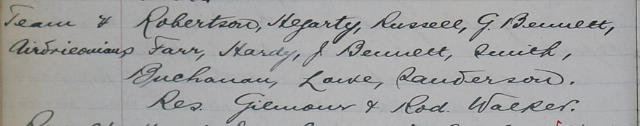 Team v Robertson, Hegarty, Russell, G. Bennett,
Airdrieonians Farr, Hardy, J Bennett, Smith,
Buchanan, Lowe, Sanderson.
Res. Gilmour & Rod. Walker.